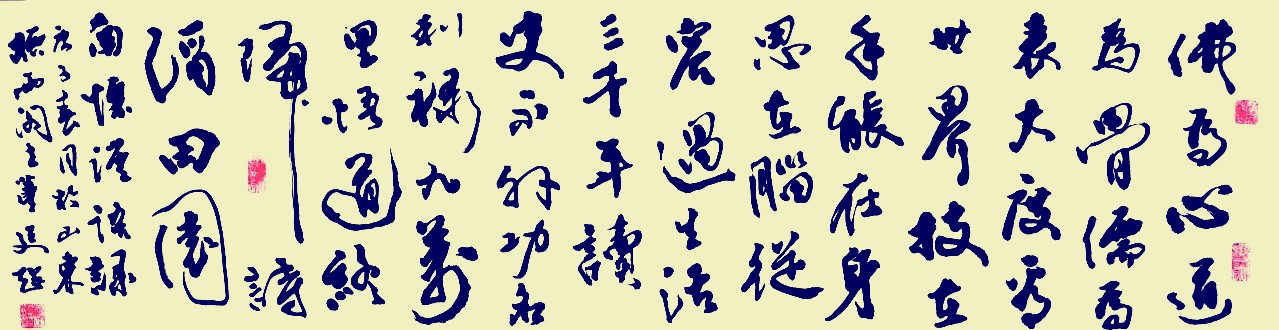 佛為心道
為骨儒為
表大度看
世界技在
手能在身
思在腦從
容過生活
三千年讀
史不外功名
利祿九萬
里悟道終
歸詩
酒田園
南懷謹語錄
庚子春月於山東
雨閣主